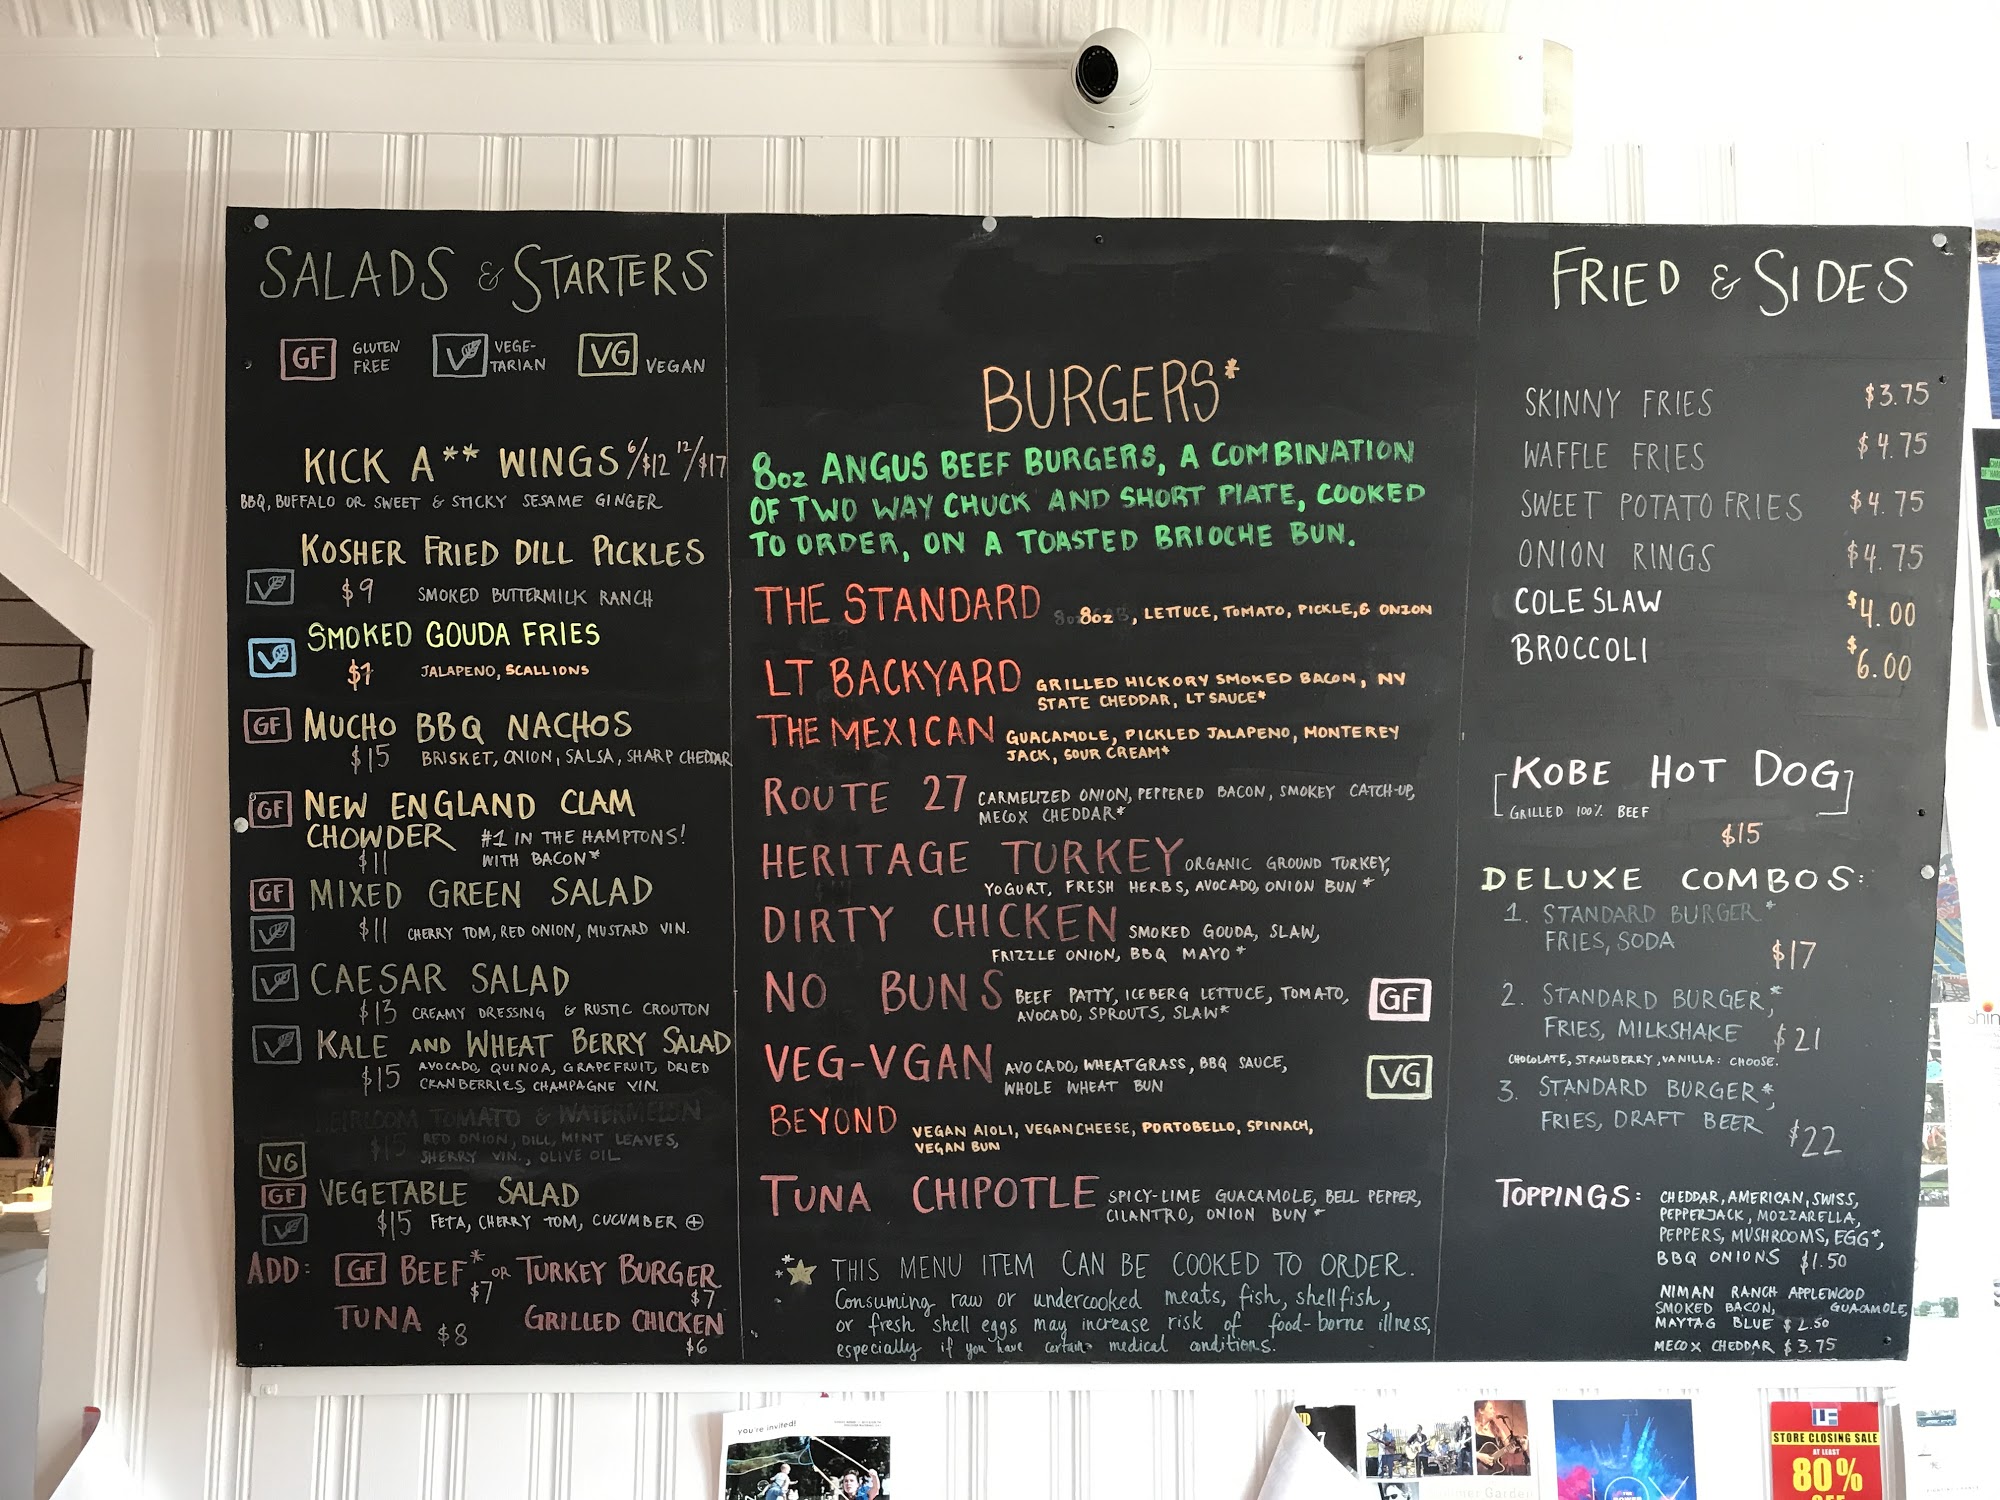 SALADS & STARTERS
GF GLUTEN FREE
V VEGE-TARIAN
VG VEGAN
KICK A** WINGS 6/$12 12/$17
BBQ, BUFFALO OR SWEET & STICKY SESAME GINGER
KOSHER FRIED DILL PICKLES
V $9 SMOKED BUTTERMILK RANCH
SMOKED GOUDA FRIES
V $7 JALAPENO, SCALLIONS
GF MUCHO BBQ NACHOS
$15 BRISKET, ONION, SALSA, SHARP CHEDDAR
GF NEW ENGLAND CLAM
CHOWDER #1 IN THE HAMPTONS!
$11 WITH BACON*
GF MIXED GREEN SALAD
V $11 CHERRY TOM, RED ONION, MUSTARD VIN.
V CAESAR SALAD
$13 CREAMY DRESSING & RUSTIC CROUTON
V KALE AND WHEAT BERRY SALAD
$15 AVOCADO, QUINOA, GRAPEFRUIT, DRIED
CRANBERRIES, CHAMPAGNE VIN.
HEIRLOOM TOMATO & WATERMELON
$15 RED ONION, DILL, MINT LEAVES,
VG SHERRY VIN., OLIVE OIL
GF VEGETABLE SALAD
V $15 FETA, CHERRY TOM, CUCUMBER
ADD: GF BEEF* $7 OR TURKEY BURGER $7
TUNA $8 GRILLED CHICKEN $6
BURGERS*
8oz ANGUS BEEF BURGERS, A COMBINATION
OF TWO WAY CHUCK AND SHORT PLATE, COOKED
TO ORDER, ON A TOASTED BRIOCHE BUN.
THE STANDARD 8oz, LETTUCE, TOMATO, PICKLE, & ONION
LT BACKYARD GRILLED HICKORY SMOKED BACON, NY
STATE CHEDDAR, LT SAUCE*
THE MEXICAN GUACAMOLE, PICKLED JALAPENO, MONTEREY
JACK, SOUR CREAM*
ROUTE 27 CARMELIZED ONION, PEPPERED BACON, SMOKEY CATCH-UP,
MECOX CHEDDAR*
HERITAGE TURKEY ORGANIC GROUND TURKEY,
YOGURT, FRESH HERBS, AVOCADO, ONION BUN*
DIRTY CHICKEN SMOKED GOUDA, SLAW,
FRIZZLE ONION, BBQ MAYO*
NO BUNS BEEF PATTY, ICEBERG LETTUCE, TOMATO, GF
AVOCADO, SPROUTS, SLAW*
VEG-VGAN AVOCADO, WHEATGRASS, BBQ SAUCE, VG
WHOLE WHEAT BUN
BEYOND VEGAN AIOLI, VEGAN CHEESE, PORTOBELLO, SPINACH,
VEGAN BUN
TUNA CHIPOTLE SPICY-LIME GUACAMOLE, BELL PEPPER,
CILANTRO, ONION BUN*
THIS MENU ITEM CAN BE COOKED TO ORDER.
Consuming raw or undercooked meats, fish, shellfish,
or fresh shell eggs may increase risk of food-borne illness,
especially if you have certain medical conditions.
FRIED & SIDES
SKINNY FRIES $3.75
WAFFLE FRIES $4.75
SWEET POTATO FRIES $4.75
ONION RINGS $4.75
COLE SLAW $4.00
BROCCOLI $6.00
KOBE HOT DOG
GRILLED 100% BEEF
$15
DELUXE COMBOS:
1. STANDARD BURGER*
FRIES, SODA $17
2. STANDARD BURGER,*
FRIES, MILKSHAKE $21
CHOCOLATE, STRAWBERRY, VANILLA: CHOOSE.
3. STANDARD BURGER*,
FRIES, DRAFT BEER $22
TOPPINGS: CHEDDAR, AMERICAN, SWISS,
PEPPERJACK, MOZZARELLA,
PEPPERS, MUSHROOMS, EGG*,
BBQ ONIONS $1.50
NIMAN RANCH APPLEWOOD
SMOKED BACON, GUACAMOLE,
MAYTAG BLUE $2.50
MECOX CHEDDAR $3.75
you're invited!
LF
STORE CLOSING SALE
AT LEAST
80%
OFF